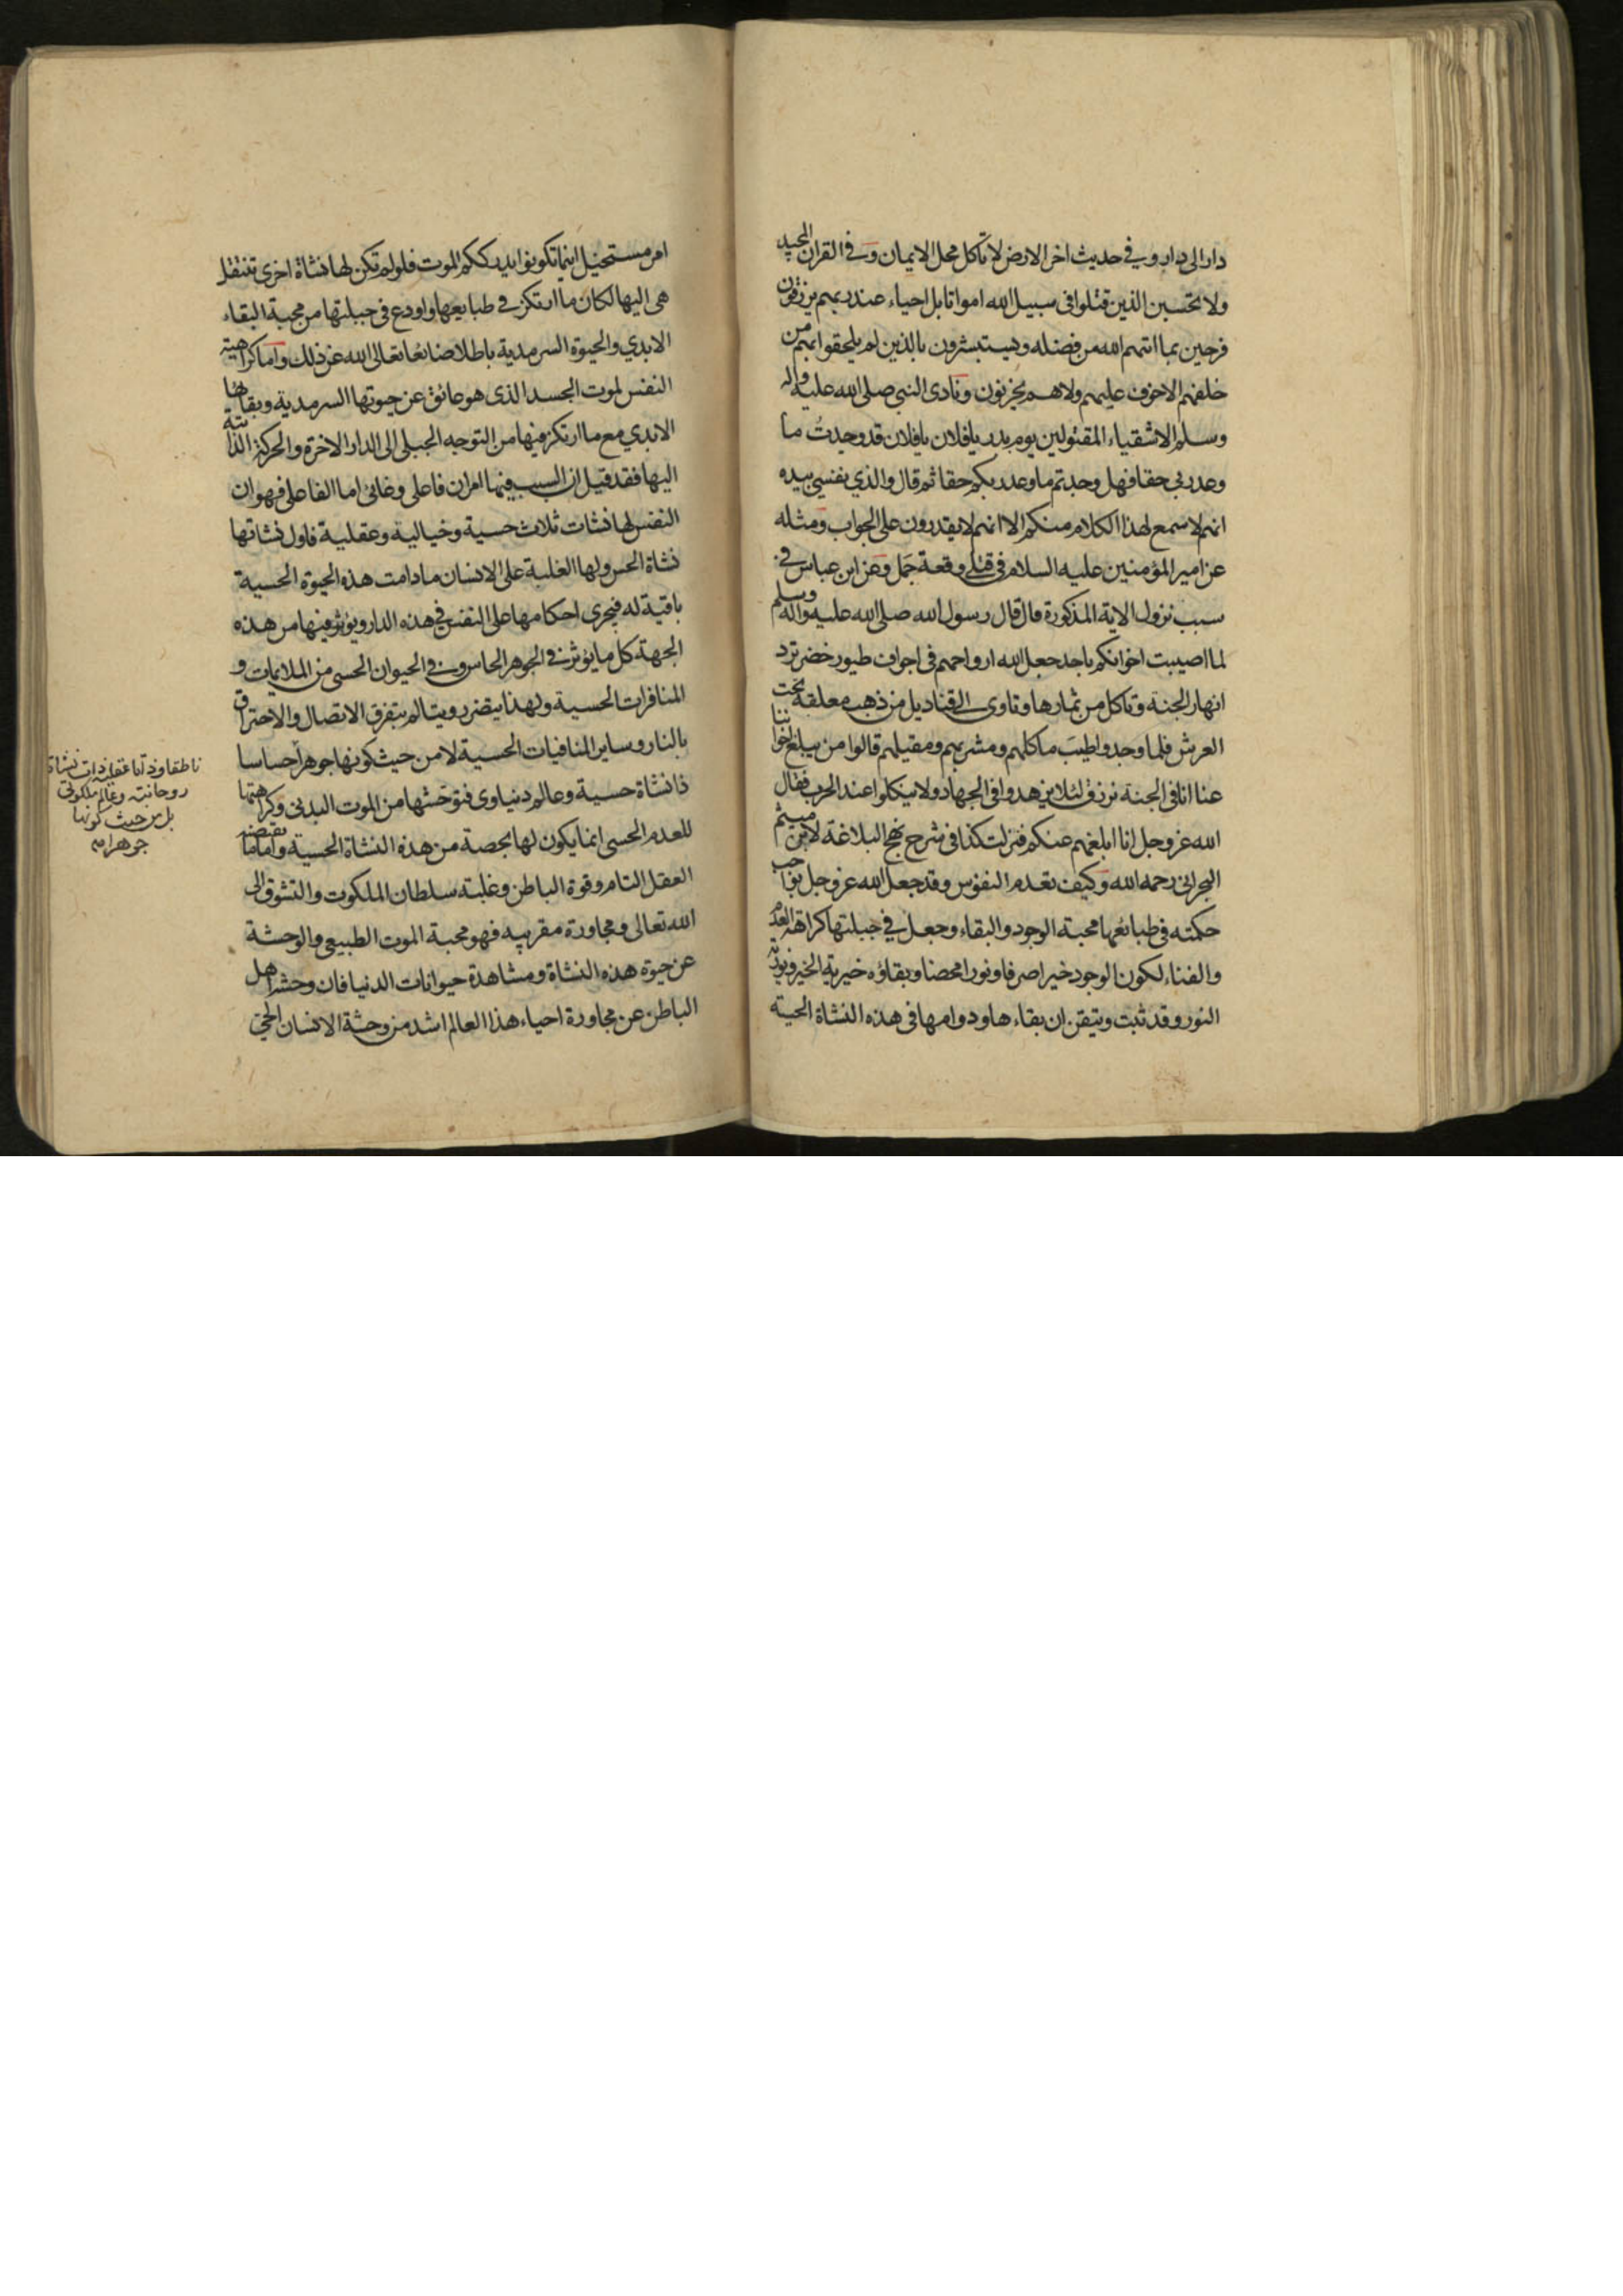 دار الى دار وفي حديث اخر الارض لا تاكل محل الايمان وفي القران المجيد
ولا تحسبن الذين قتلوا في سبيل الله امواتا بل احياء عند ربهم يرزقون
فرحين بما اتيهم الله من فضله ويستبشرون بالذين لم يلحقوا بهم من
خلفهم الاخوف عليهم ولا هم يحزنون ونادى النبي صلى الله عليه واله
وسلم الاشقياء المقتولين يوم بدر يا فلان يا فلان قد وجدت ما
وعد ربي حقا فهل وجدتم ما وعد ربكم حقا ثم قال والذي نفسي بيده
انهم لاسمع لهذا الكلام منكم الا انهم لا يقدرون على الجواب ومثله
عن امير المؤمنين عليه السلام في قتلى وقعة جمل وعن ابن عباس في
سبب نزول الاية المذكورة قال قال رسول الله صلى الله عليه واله وسلم
لما اصيبت اخوانكم باحد جعل الله ارواحهم في اجواف طيور خضر ترد
انهار الجنة وتاكل من ثمارها وتاوى الى قناديل من ذهب معلقة تحت
العرش فلما وجدوا طيب ماكلهم ومشربهم ومقيلهم قالوا من يبلغ اخواننا
عنا انا في الجنة نرزق لئلا يزهدوا في الجهاد ولا ينكلوا عند الحرب فقال
الله عز وجل انا ابلغهم عنكم فنزلت كذا في شرح نهج البلاغة لابن ميثم
البحراني رحمه الله وكيف تعدم النفوس وقد جعل الله عز وجل بواجب
حكمته في طبائعها محبة الوجود والبقاء وجعل في جبلتها كراهة العدم
والفناء لكون الوجود خيرا صرفا ونورا محضا وبقاؤه خيرية الخير ونورية
النور وقد ثبت وتيقن ان بقاءها ودوامها في هذه النشاة الحسية
امر مستحيل اينما تكونوا يدرككم الموت فلو لم تكن لها نشاة اخرى تنتقل
هي اليها لكان ما ارتكز في طبايعها واودع في جبلتها من محبة البقاء
الابدي والحيوة السرمدية باطلا ضائعا تعالى الله عن ذلك واما كراهية
النفس لموت الجسد الذي هو عائق عن حيوتها السرمدية وبقائها
الابدي مع ما ارتكز فيها من التوجه الجبلى الى الدار الاخرة والحركة الذاتية
اليها فقد قيل ان السبب فيها امران فاعلى وغائى اما الفاعلى فهو ان
النفس لها نشات ثلاث حسية وخيالية وعقلية فاول نشاتها
نشاة الحس ولها الغلبة على الانسان ما دامت هذه الحيوة الحسية
باقية له فيجرى احكامها على النفس في هذه الدار ويؤثر فيها من هذه
الجهة كل ما يؤثر في الجوهر الحاس وفي الحيوان الحسى من الملائمات و
المنافرات الحسية ولهذا يتضرر ويتالم بتفرق الاتصال والاحتراق
بالنار وساير المنافيات الحسية لا من حيث كونها جوهرا حساسا
ذا نشاة حسية وعالم دنياوى فتوحشها من الموت البدنى وكراهتها
للعدم الحسى انما يكون لها بحصة من هذه النشاة الحسية واما ما يقتضيه
العقل التام وقوة الباطن وغلبة سلطان الملكوت والتشوق الى
الله تعالى ومجاورة مقربيه فهو محبة الموت الطبيعى والوحشة
عن حيوة هذه النشاة ومشاهدة حيوانات الدنيا فان وحشة اهل
الباطن عن مجاورة احياء هذا العالم اشد من وحشة الانسان الحى
ناطقا وذاتا عقلية ذات نشاة
روحانية وعالم ملكوتى
بل من حيث كونها
جوهرا